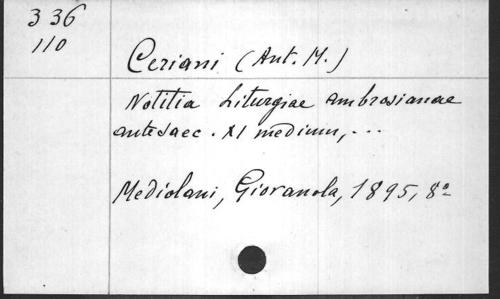 336
110
Ceriani (Ant. M.)
Notitia Liturgiae ambrosianae
ante saec. XI medium, ...
Mediolani, Giovanola, 1895, 8º